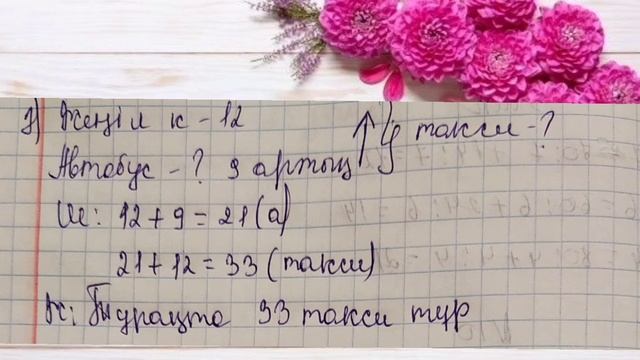 1) Жеңіл к - 12
такси - ?
Автобус - ? 9 артық
Ш: 12 + 9 = 21 (а)
21 + 12 = 33 (такси)
Ж: Тұрақта 33 такси тұр